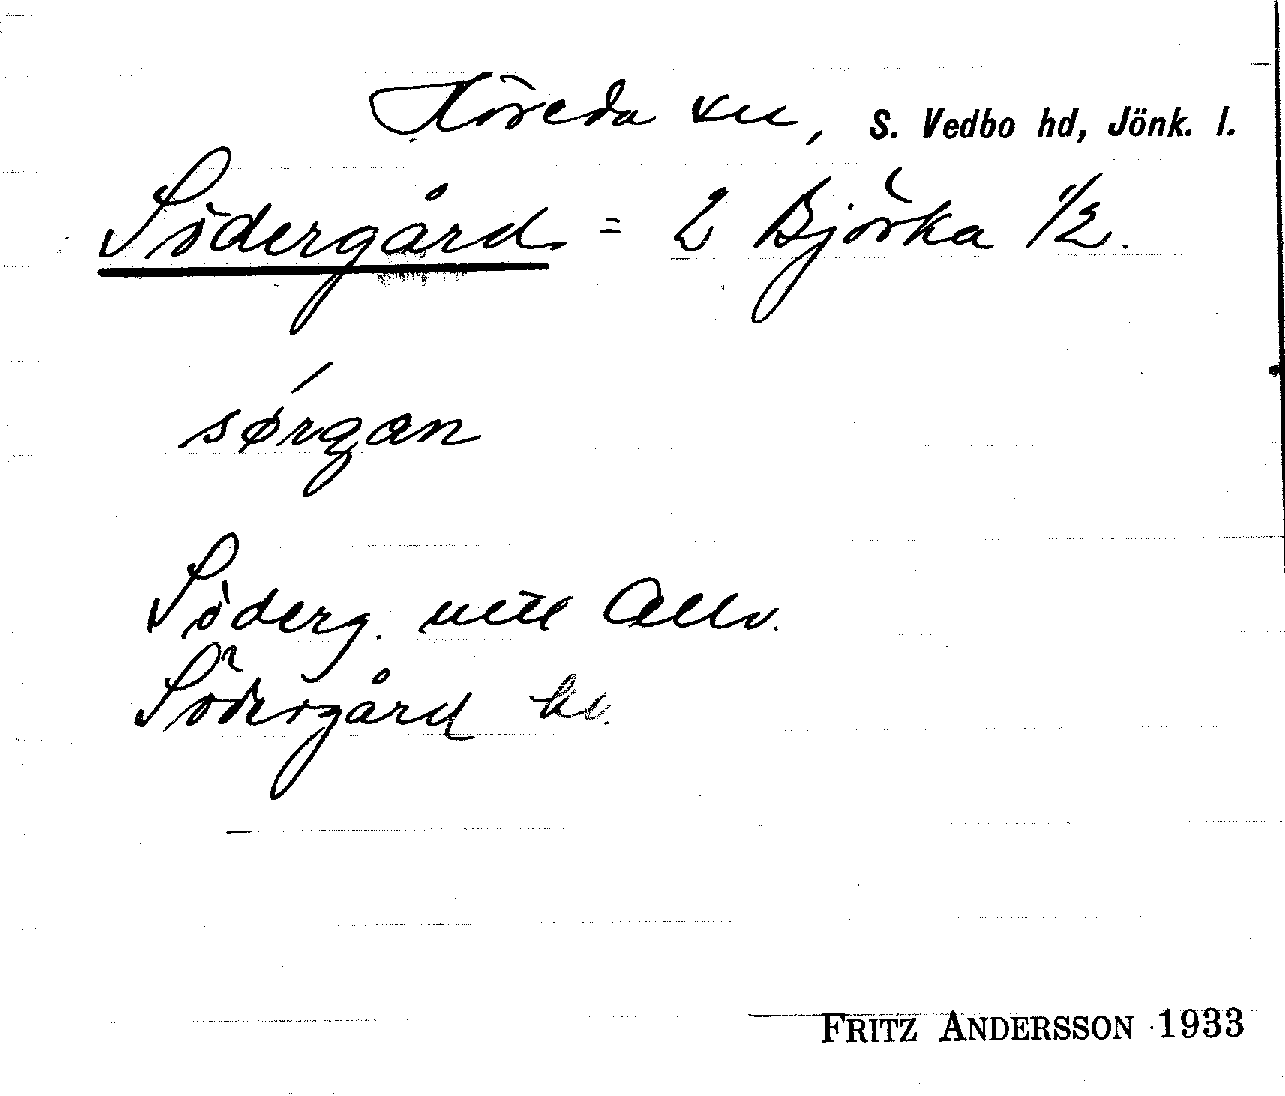 Höreda sn, S. Vedbo hd, Jönk. l.
Södergård = 2 Björka 1/2.
sørgan
Söderg. utt Allm.
Södergård
FRITZ ANDERSSON 1933